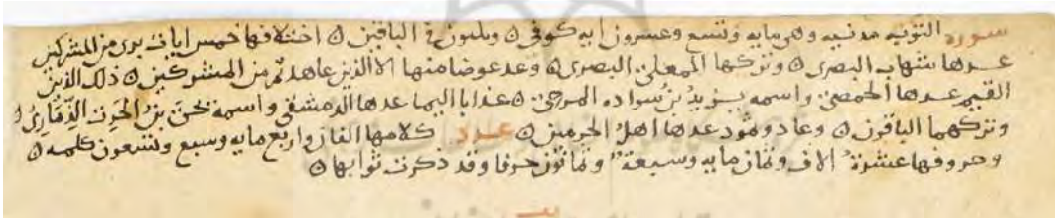 سورة التوبه مدنيه وهى مايه وتسع وعشرون ايه كوفى ه وثلثون فى الباقين ه اختلافها خمس ايات برى من المشركين
عدها شهاب البصرى ه وتركها المعلى البصرى ه وعد عوضا منها الا الذين عاهدتم من المشركين ه ذلك الدين
القيم عدها الحمصى واسمه يزيد بن سواده المرجى ه عذابا اليما عدها الدمشقى واسمه يحيى بن الحرث الذمارى
وتركهما الباقون ه وعاد وثمود عدها اهل الحرمين ه عدد كلامها الفان واربع مايه وسبع وتسعون كلمه ه
وحروفها عشرة الاف وثمان مايه وسبعة وثمانون حرفا وقد ذكرت ثوابها ه